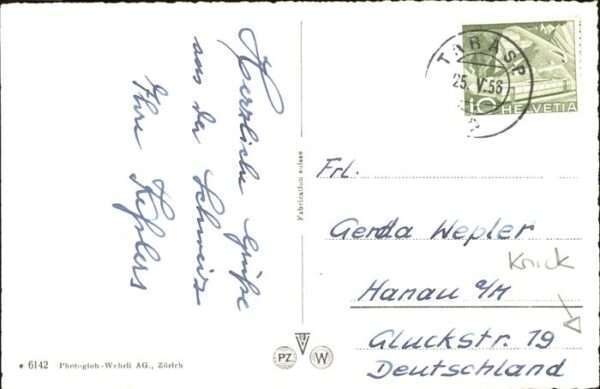 Herzliche Grüße
aus der Schweiz
Ihre Keßlers
Fabrication suisse
TARASP
25. V. 56
10 HELVETIA
Frl.
Gerda Wepler
Knick
Hanau a/M
Gluckstr. 19
Deutschland
6142 Photoglob-Wehrli AG., Zürich
PZ W